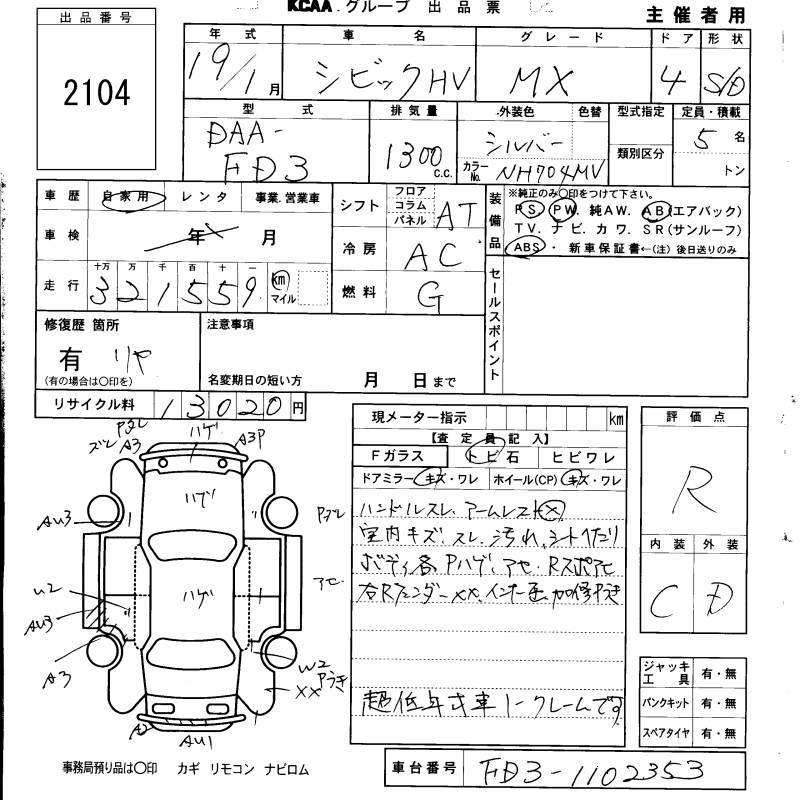 KCAA.グループ 出品票
主催者用
出品番号
2104
年式 車名 グレード ドア 形状
19/1月 シビックHV MX 4 S/D
型式 排気量 外装色 色替 型式指定 定員・積載
DAA-FD3 1300 c.c. シルバー 類別区分 5名
カラーNo. NH704MV トン
車歴 自家用 レンタ 事業.営業車
シフト フロア コラム パネル AT
車検 年 月
冷房 AC
走行 十万 万 千 百 十 一
321559 km マイル
燃料 G
装備品
※純正のみ○印をつけて下さい。
PS. PW. 純AW. AB(エアバック)
TV. ナビ. カワ. SR(サンルーフ)
ABS・新車保証書←(注)後日送りのみ
セールスポイント
修復歴 箇所
有 リヤ
(有の場合は○印を)
注意事項
名変期日の短い方 月 日まで
リサイクル料 13020円
現メーター指示 km
【査定員記入】
Fガラス トビ石 ヒビワレ
ドアミラー キズ・ワレ ホイール(CP) キズ・ワレ
ハンドルスレ、アームレスト×
室内キズ、スレ、汚れ、シートへたり
ボディ各Pハゲ、アセ、Rスポアセ
右Rフェンダーxx、インナー 加修
超低年式車ノークレームです
評価点
R
内装 外装
C D
ジャッキ工具 有・無
パンクキット 有・無
スペアタイヤ 有・無
ハゲ
A3
A3P
ハゲ
AU3
アセ
U2
ハゲ
AU3
A3
W2
XX
A2
AU1
事務局預り品は○印 カギ リモコン ナビロム
車台番号 FD3-1102353